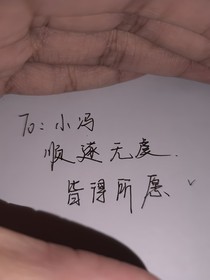 To：小冯
顺遂无虞.
皆得所愿